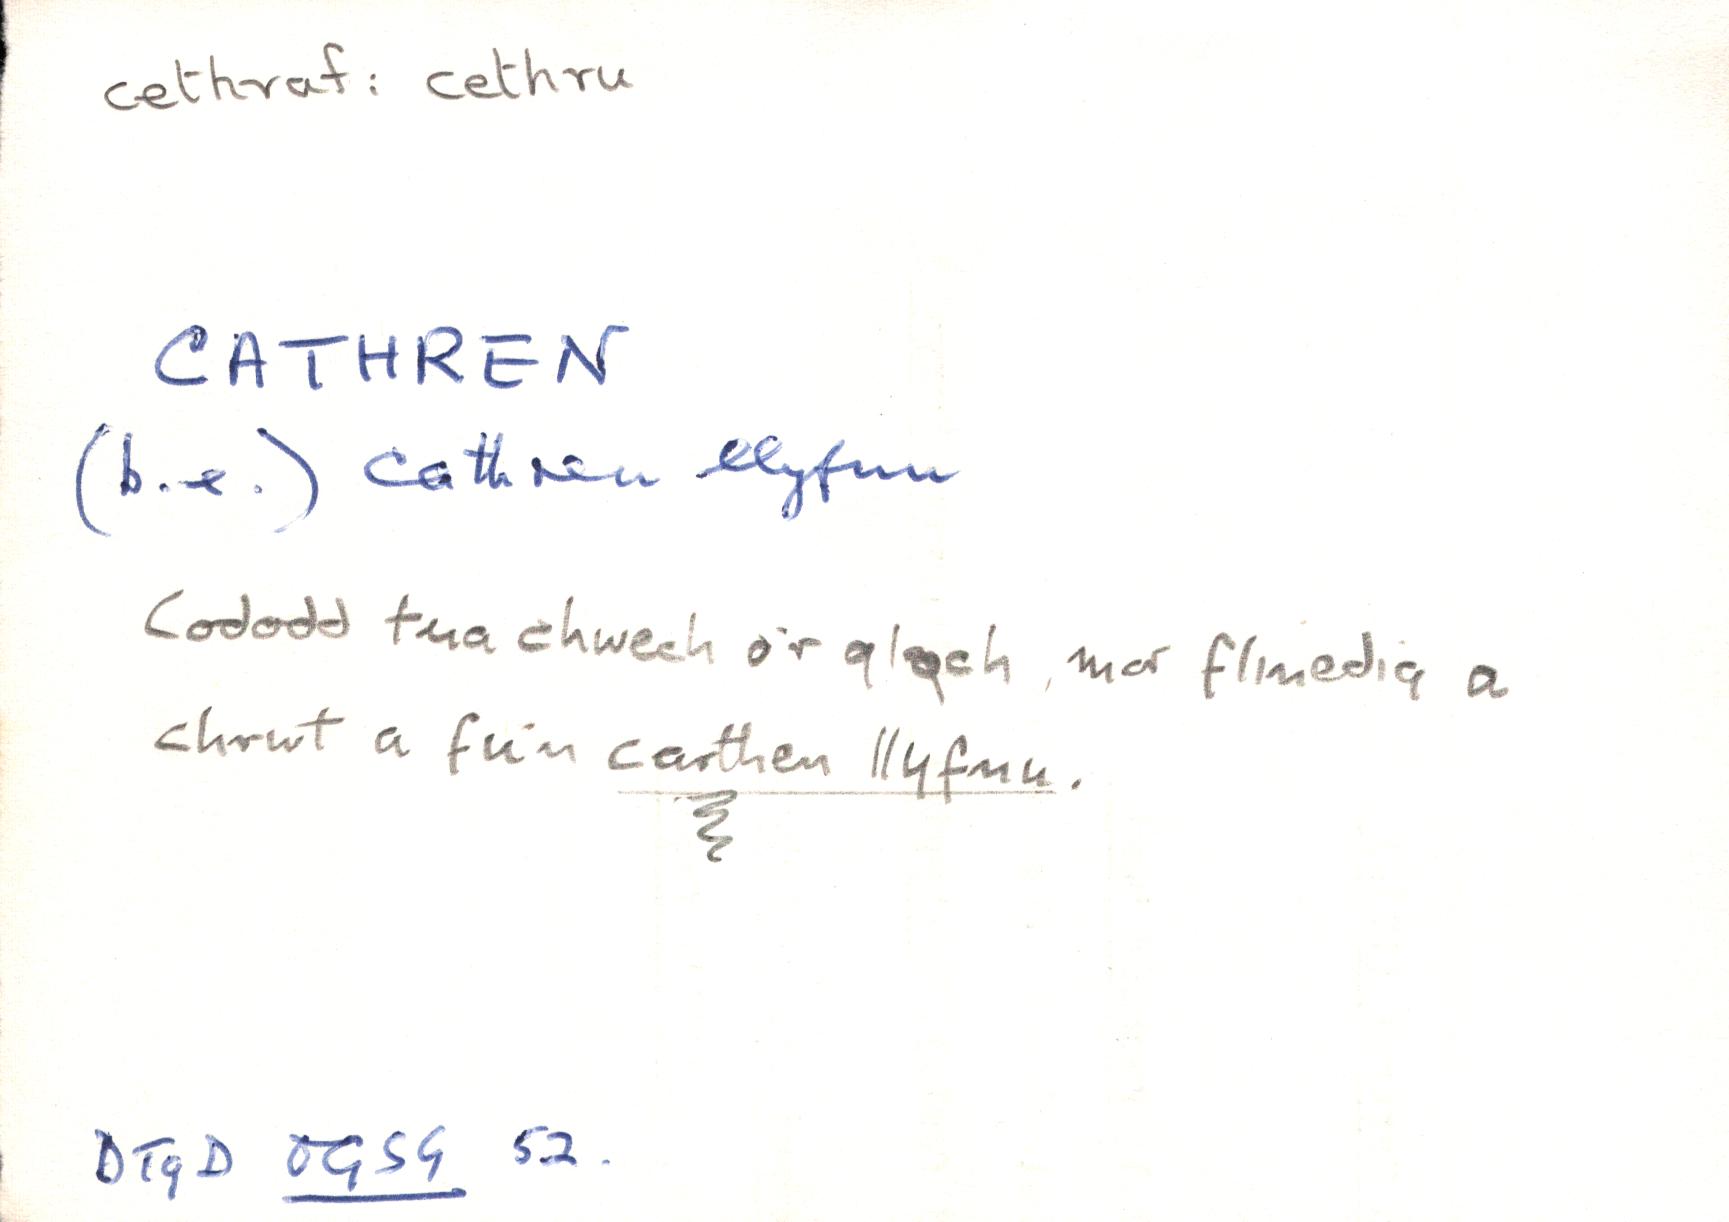 cethraf: cethru
CATHREN
(b.e.) cathren llyfnu
Cododd tua chwech o'r gloch, mor flinedig a
chrwt a fu'n carthen llyfnu.
DTgD OGSG 52.